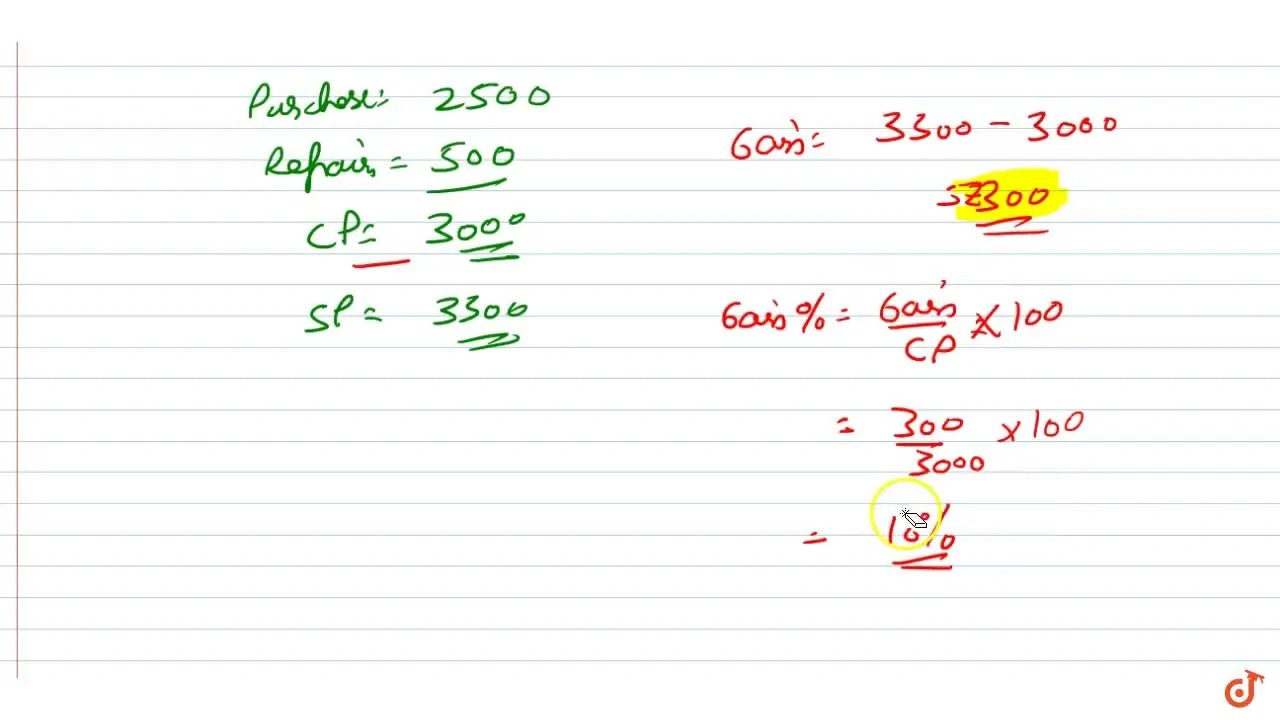 Purchase = 2500
Repairs = 500
CP = 3000
SP = 3300
Gain = 3300 - 3000
300
Gain % = Gain / CP × 100
= 300 / 3000 × 100
= 10%